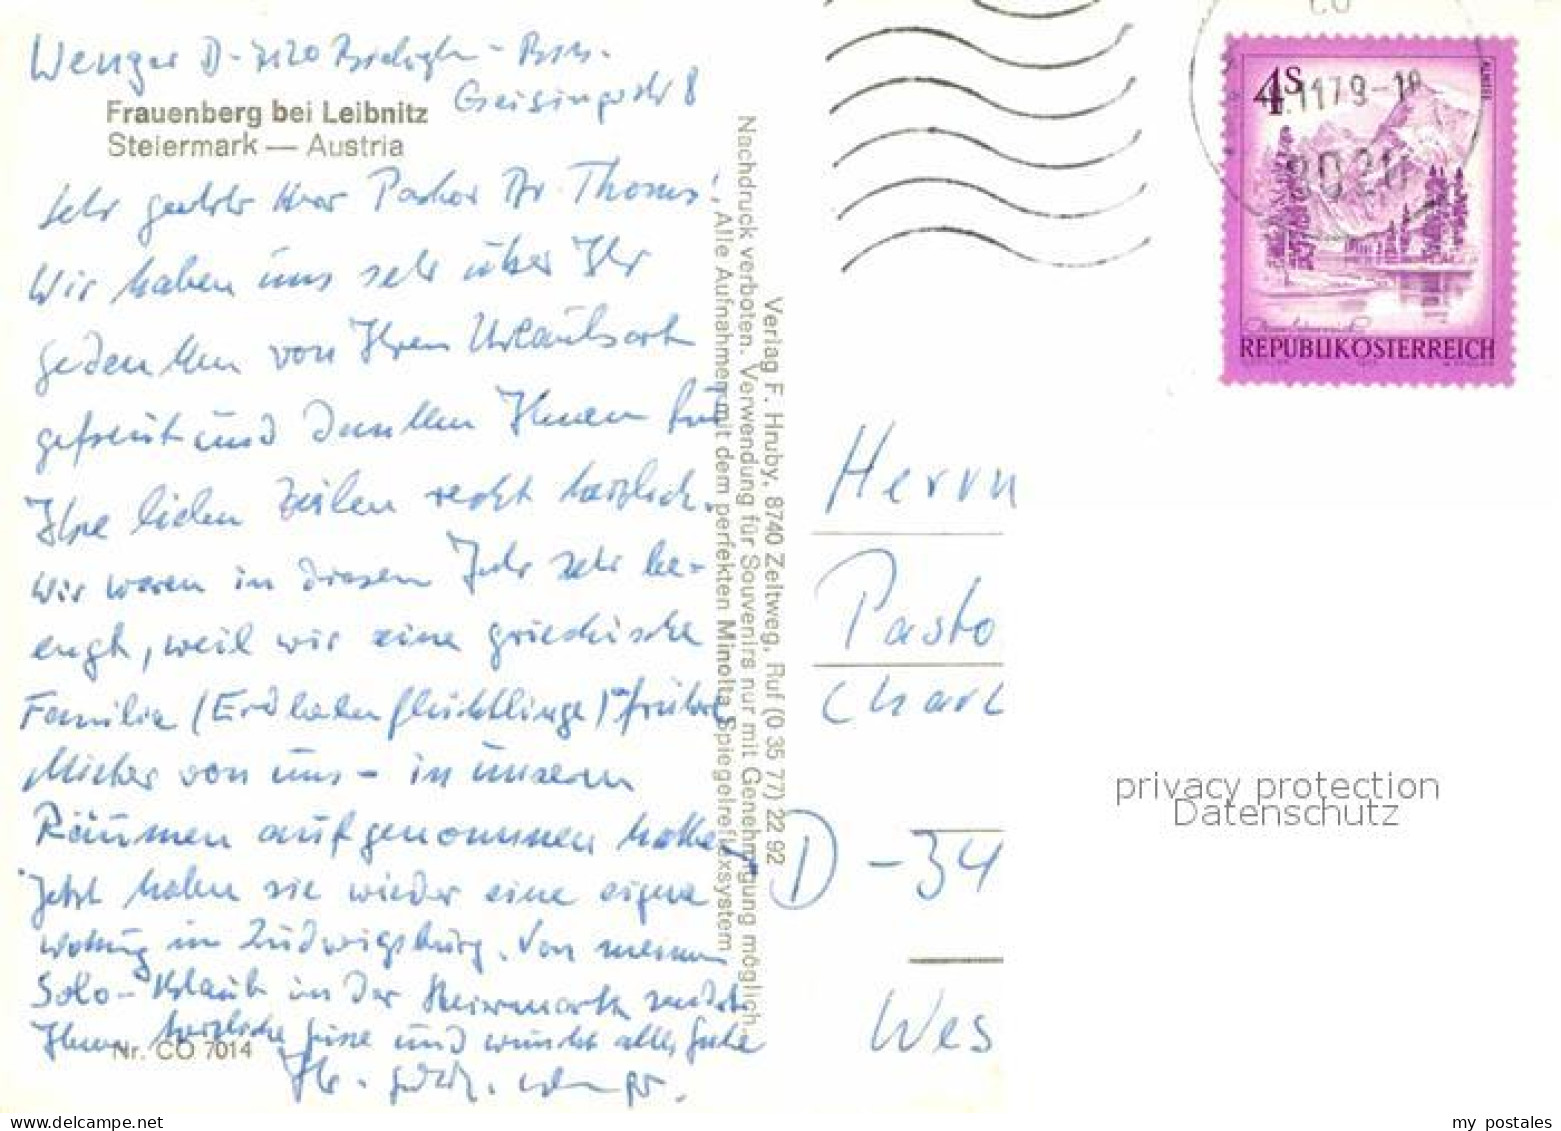 Wenger D-7120 Bietighm - Bssn.
Geisingerstr 8
Frauenberg bei Leibnitz
Steiermark — Austria
Sehr geehrter Herr Pastor Dr. Thoms!
Wir haben uns sehr über Ihr
gedenken von Ihrem Urlaubsort
gefreut und danken Ihnen für
Ihre lieben Zeilen recht herzlich.
Wir waren in diesem Jahr sehr be-
engt, weil wir eine griechische
Familie (Erdbebenflüchtlinge) früher
Mieter von uns - in unseren
Räumen aufgenommen hatten
Jetzt haben sie wieder eine eigene
Wohnung in Ludwigsburg. Von meinem
Solo-Urlaub in der Steiermark sendet
Ihnen herzliche Grüsse und wünscht alles Gute
Ihr
Nr. CO 7014
Verlag F. Hruby, 8740 Zeltweg, Ruf (0 35 77) 22 92
Nachdruck verboten. Verwendung für Souvenirs nur mit Genehmigung möglich.
Alle Aufnahmen mit dem perfekten Minolta Spiegelreflexsystem
4S
ALMSEE
.1179-18
8020
REPUBLIK ÖSTERREICH
Herrn
Pasto
Charl
D - 34
Wes
privacy protection
Datenschutz
my postales